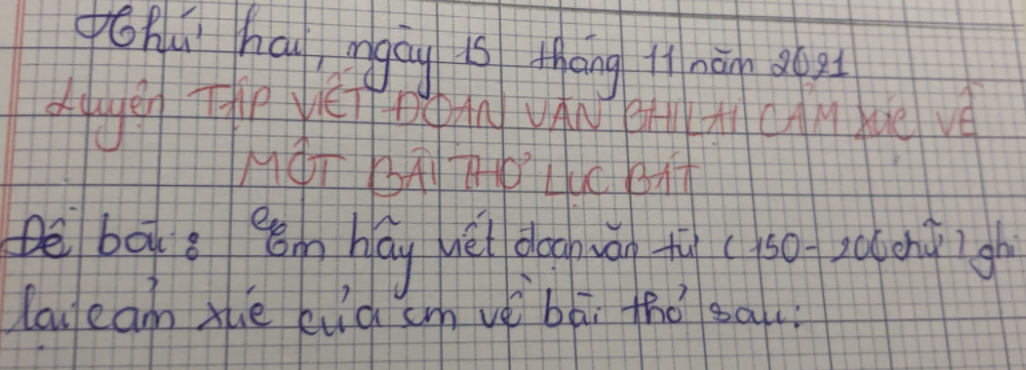 Thứ hai, ngày 15 tháng 11 năm 2021
Luyện TẬP VIẾT ĐOẠN VĂN GHI LẠI CẢM XÚC VỀ
MỘT BÀI THƠ LỤC BÁT
Đề bài: em hãy viết đoạn văn từ (150-200 chữ) ghi
lại cảm xúc của em về bài thơ sau: